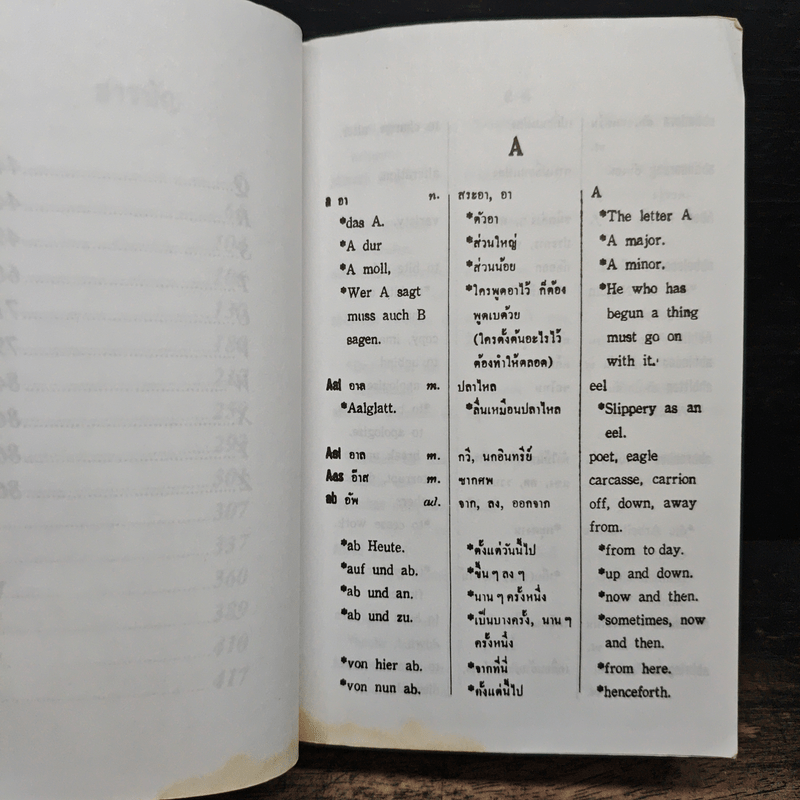 A
a อา n. สระอา, อา A
*das A. *ตัวอา *The letter A
*A dur *ส่วนใหญ่ *A major.
*A moll, *ส่วนน้อย *A minor.
*Wer A sagt *ใครพูดอาไว้ ก็ต้อง *He who has
muss auch B พูดเบด้วย begun a thing
sagen. (ใครตั้งต้นอะไรไว้ must go on
ต้องทำให้ตลอด) with it.
Aal อาล m. ปลาไหล eel
*Aalglatt. *ลื่นเหมือนปลาไหล *Slippery as an
eel.
Aal อาล m. กวี, นกอินทรีย์ poet, eagle
Aas อ๊าส m. ซากศพ carcasse, carrion
ab อัพ ad. จาก, ลง, ออกจาก off, down, away
from.
*ab Heute. *ตั้งแต่วันนี้ไป *from to day.
*auf und ab. *ขึ้นๆ ลงๆ *up and down.
*ab und an. *นานๆ ครั้งหนึ่ง *now and then.
*ab und zu. *เป็นบางครั้ง, นานๆ *sometimes, now
ครั้งหนึ่ง and then.
*von hier ab. *จากที่นี่ *from here.
*von nun ab. *ตั้งแต่นี้ไป *henceforth.